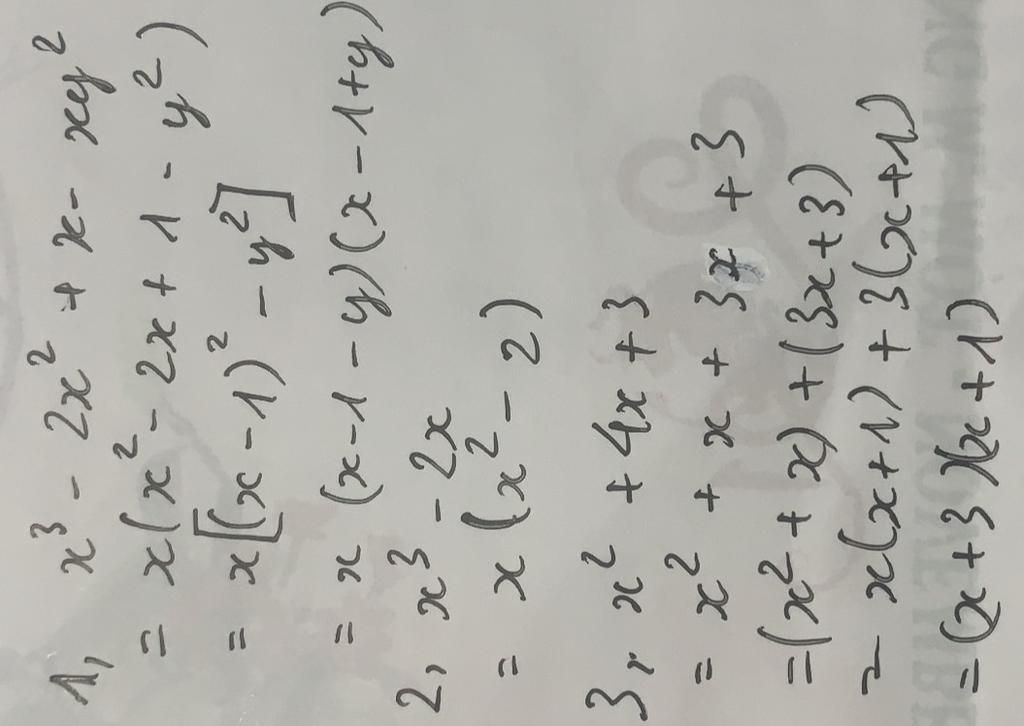 1, x³ - 2x² + x - xy²
= x(x² - 2x + 1 - y²)
= x[(x-1)² - y²]
= x (x-1-y)(x-1+y)
2, x³ - 2x
= x (x² - 2)
3, x² + 4x + 3
= x² + x + 3x + 3
=(x² + x) + (3x+3)
= x(x+1) + 3(x+1)
=(x+3)(x+1)